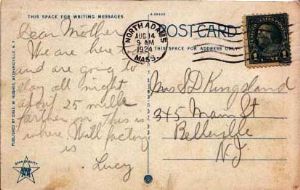 THIS SPACE FOR WRITING MESSAGES.
POSTCARD
NORTH ADAMS
AUG 14
9 AM
1924
MASS.
THIS SPACE FOR ADDRESS ONLY.
Dear Mother
We are here
and are going to
stay all night
about 25 miles
farther on This is
where Hall factory
is
Lucy
Mrs S D Kingsland
345 Main St
Belleville
N J